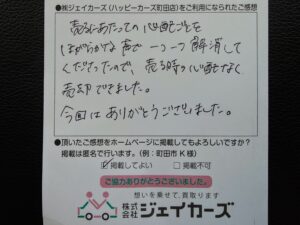 ●㈱ジェイカーズ(ハッピーカーズ町田店)をご利用になられたご感想
売るにあたっての心配ごとを
ほがらかな声で一つ一つ解消して
くださったので、売る時の心配なく
売却できました。
今回はありがとうございました。
●頂いたご感想をホームページに掲載してもよろしいですか?
掲載は匿名で行います。(例:町田市K様)
☑掲載してよい □掲載不可
ご協力ありがとうございました。
想いを乗せて、買取ります
株式会社ジェイカーズ